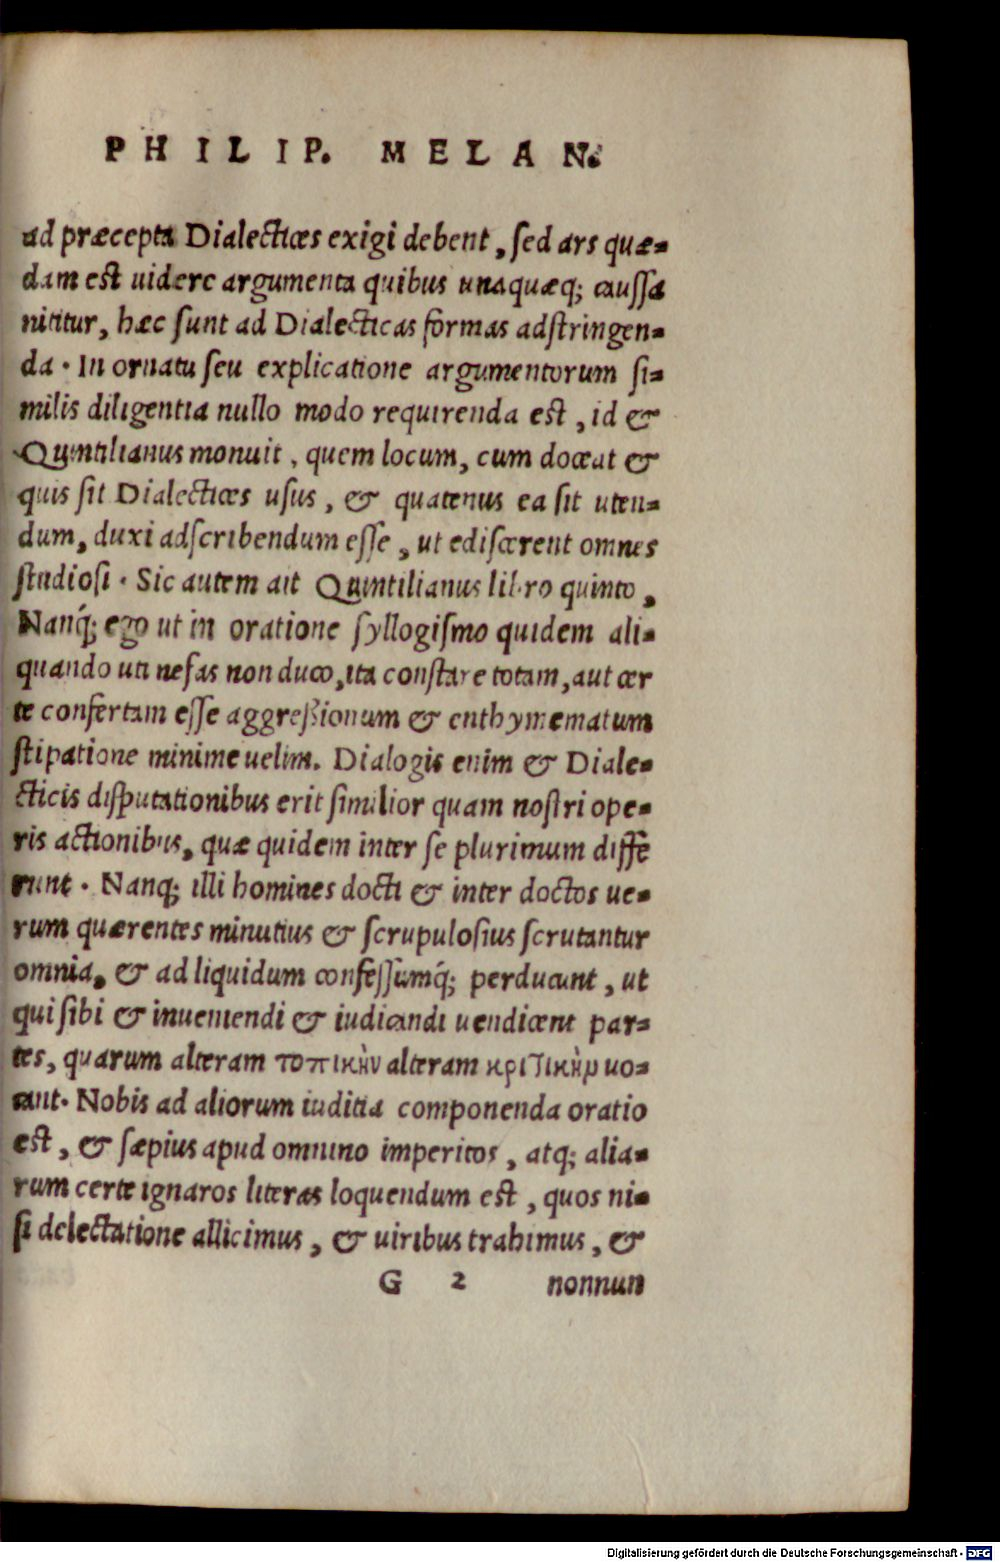 PHILIP. MELAN.
ad præcepta Dialectices exigi debent, sed ars quæ-
dam est uidere argumenta quibus unaquæq; caussa
nititur, hæc sunt ad Dialecticas formas adstringen-
da. In ornatu seu explicatione argumentorum si-
milis diligentia nullo modo requirenda est, id &
Quintilianus monuit, quem locum, cum doceat &
quis sit Dialectices usus, & quatenus ea sit uten-
dum, duxi adscribendum esse, ut ediscerent omnes
studiosi. Sic autem ait Quintilianus libro quinto,
Nanq́; ego ut in oratione syllogismo quidem ali-
quando uti nefas non duco, ita constare totam, aut cer
te confertam esse aggreßionum & enthymematum
stipatione minime uelim. Dialogis enim & Diale-
cticis disputationibus erit similior quam nostri ope-
ris actionibus, quæ quidem inter se plurimum diffe
runt. Nanq; illi homines docti & inter doctos ue-
rum quærentes minutius & scrupulosius scrutantur
omnia, & ad liquidum confessumq́; perducunt, ut
qui sibi & inueniendi & iudicandi uendicent par-
tes, quarum alteram τοπικὴν alteram κριτικὴν uo-
cant. Nobis ad aliorum iuditia componenda oratio
est, & sæpius apud omnino imperitos, atq; alia-
rum certe ignaros literas loquendum est, quos ni-
si delectatione allicimus, & uiribus trahimus, &
G 2 nonnun
Digitalisierung gefördert durch die Deutsche Forschungsgemeinschaft - DFG